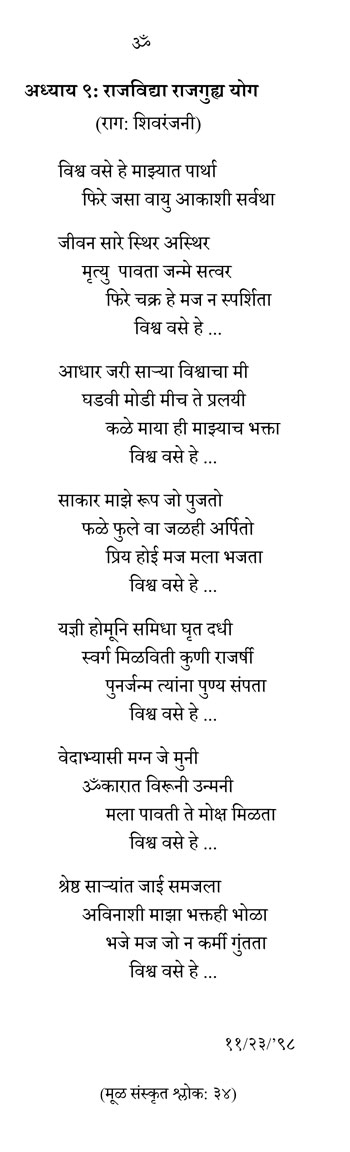 ॐ
अध्याय ९: राजविद्या राजगुह्य योग
(राग: शिवरंजनी)
विश्व वसे हे माझ्यात पार्था
फिरे जसा वायु आकाशी सर्वथा
जीवन सारे स्थिर अस्थिर
मृत्यु पावता जन्मे सत्वर
फिरे चक्र हे मज न स्पर्शिता
विश्व वसे हे ...
आधार जरी साऱ्या विश्वाचा मी
घडवी मोडी मीच ते प्रलयी
कळे माया ही माझ्याच भक्ता
विश्व वसे हे ...
साकार माझे रूप जो पुजतो
फळे फुले वा जळही अर्पितो
प्रिय होई मज मला भजता
विश्व वसे हे ...
यज्ञी होमूनि समिधा घृत दधी
स्वर्ग मिळविती कुणी राजर्षी
पुनर्जन्म त्यांना पुण्य संपता
विश्व वसे हे ...
वेदाभ्यासी मग्न जे मुनी
ॐकारात विरूनी उन्मनी
मला पावती ते मोक्ष मिळता
विश्व वसे हे ...
श्रेष्ठ साऱ्यांत जाई समजला
अविनाशी माझा भक्तही भोळा
भजे मज जो न कर्मी गुंतता
विश्व वसे हे ...
११/२३/'९८
(मूळ संस्कृत श्लोक: ३४)